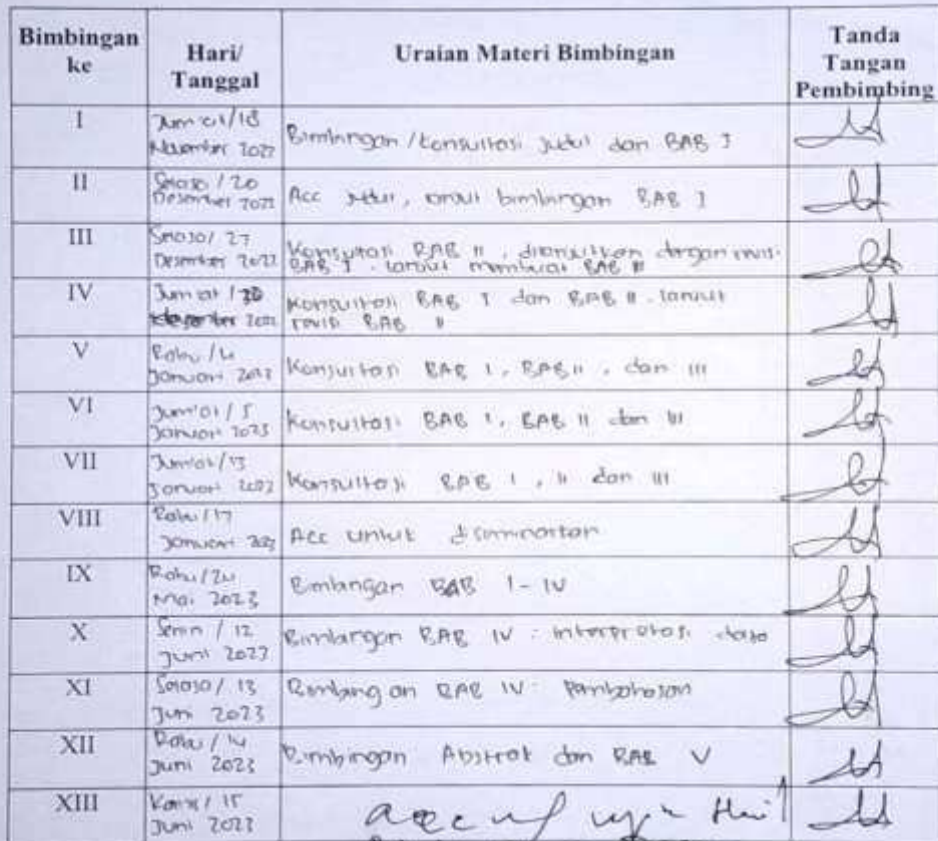 Bimbingan ke
Hari/ Tanggal
Uraian Materi Bimbingan
Tanda Tangan Pembimbing
I
Jum'at/18
November 2022
Bimbingan/konsultasi judul dan BAB I
II
Selasa / 20
Desember 2022
Acc judul, lanjut bimbingan BAB I
III
Selasa/ 27
Desember 2022
Konsultasi BAB II, dilanjutkan dengan revisi
BAB I. lanjut membuat BAB III
IV
Jum'at / 30
Desember 2022
Konsultasi BAB I dan BAB II. lanjut
revisi BAB II
V
Rabu/4
Januari 2023
Konsultasi BAB I, BAB II, dan III
VI
Jum'at / 5
Januari 2023
Konsultasi BAB I, BAB II dan III
VII
Jum'at/13
Januari 2023
Konsultasi BAB I, II dan III
VIII
Rabu/17
Januari 2023
Acc untuk diseminarkan
IX
Rabu/24
Mai 2023
Bimbingan BAB I-IV
X
Senin / 12
Juni 2023
Bimbingan BAB IV : interpretasi data
XI
Selasa/ 13
Juni 2023
Bimbingan BAB IV: Pembahasan
XII
Rabu / 14
Juni 2023
Bimbingan Abstrak dan BAB V
XIII
Kamis/ 15
Juni 2023
acc